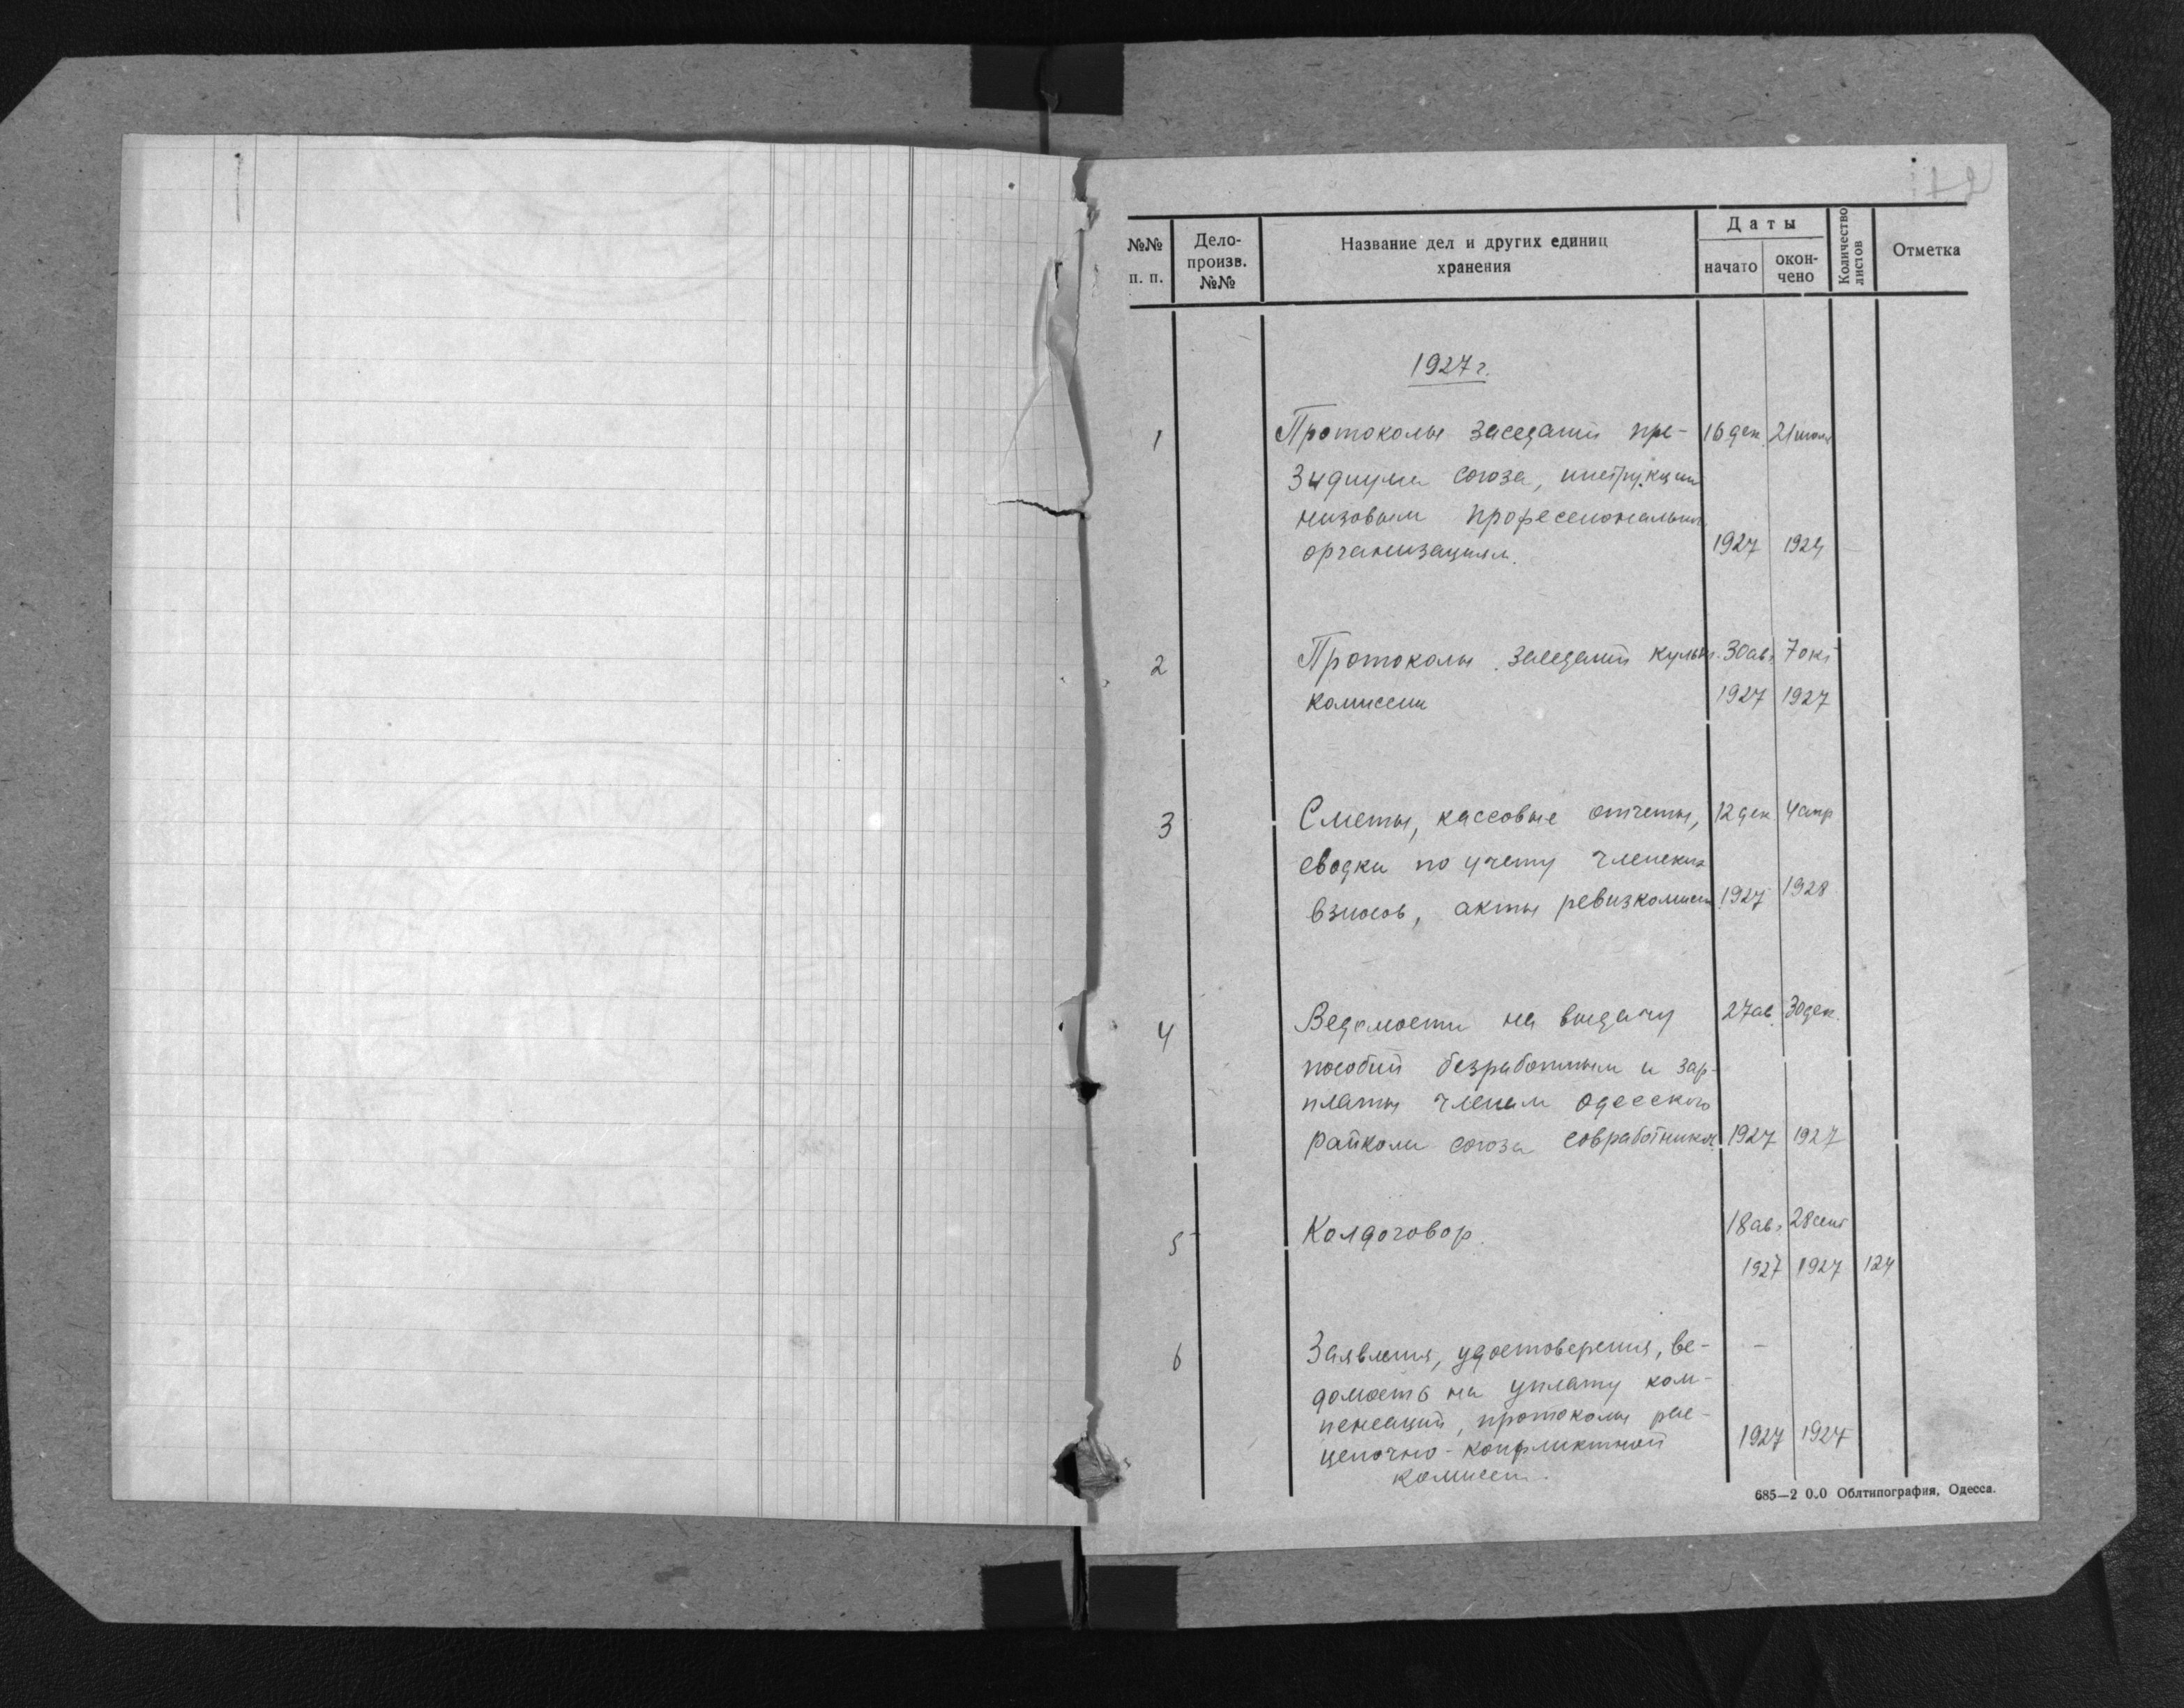 №№ п. п.
Дело-
произв.
№№
Название дел и других единиц
хранения
Даты
начато
окон-
чено
Количество
листов
Отметка
1927 г.
1 Протоколы заседаний пре- 16 дек. 21 июля
зидиума союза, инструкции
низовым профессиональн.
организациям. 1927
2 Протоколы заседаний культ. 30 авг. 7 окт
комиссии 1927 1927
3 Сметы, кассовые отчеты, 12 дек 4 апр
сводки по учету членских
взносов, акты ревизкомисси 1927 1928
4 Ведомости на выдачу 27 ав. 30 дек.
пособий безработным и зар-
платы членам Одесского
райкома союза совработников 1927 1927
5 Колдоговор. 18 авг 28 сент
1927 1927 124
6 Заявления, удостоверения, ве- —
домость на уплату ком-
пенсаций, протоколы рас-
ценочно-конфликтной 1927 1927
комиссии.
685—2 Облтипография, Одесса.